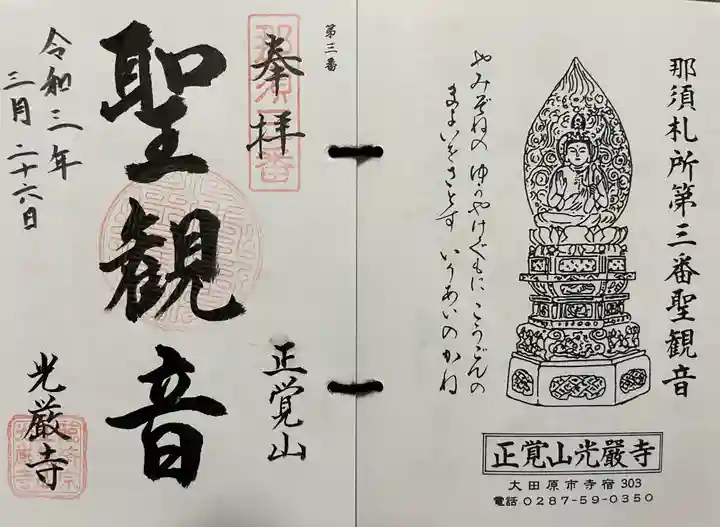 那須札所第三番聖観音
やみぞねの ゆうやけぐもに こうごんの
まよいをさとす いりあいのかね
正覚山光厳寺
大田原市寺宿 303
電話 0287-59-0350
第三番
奉拝
聖観音
正覚山
光厳寺
令和三年
三月二十六日